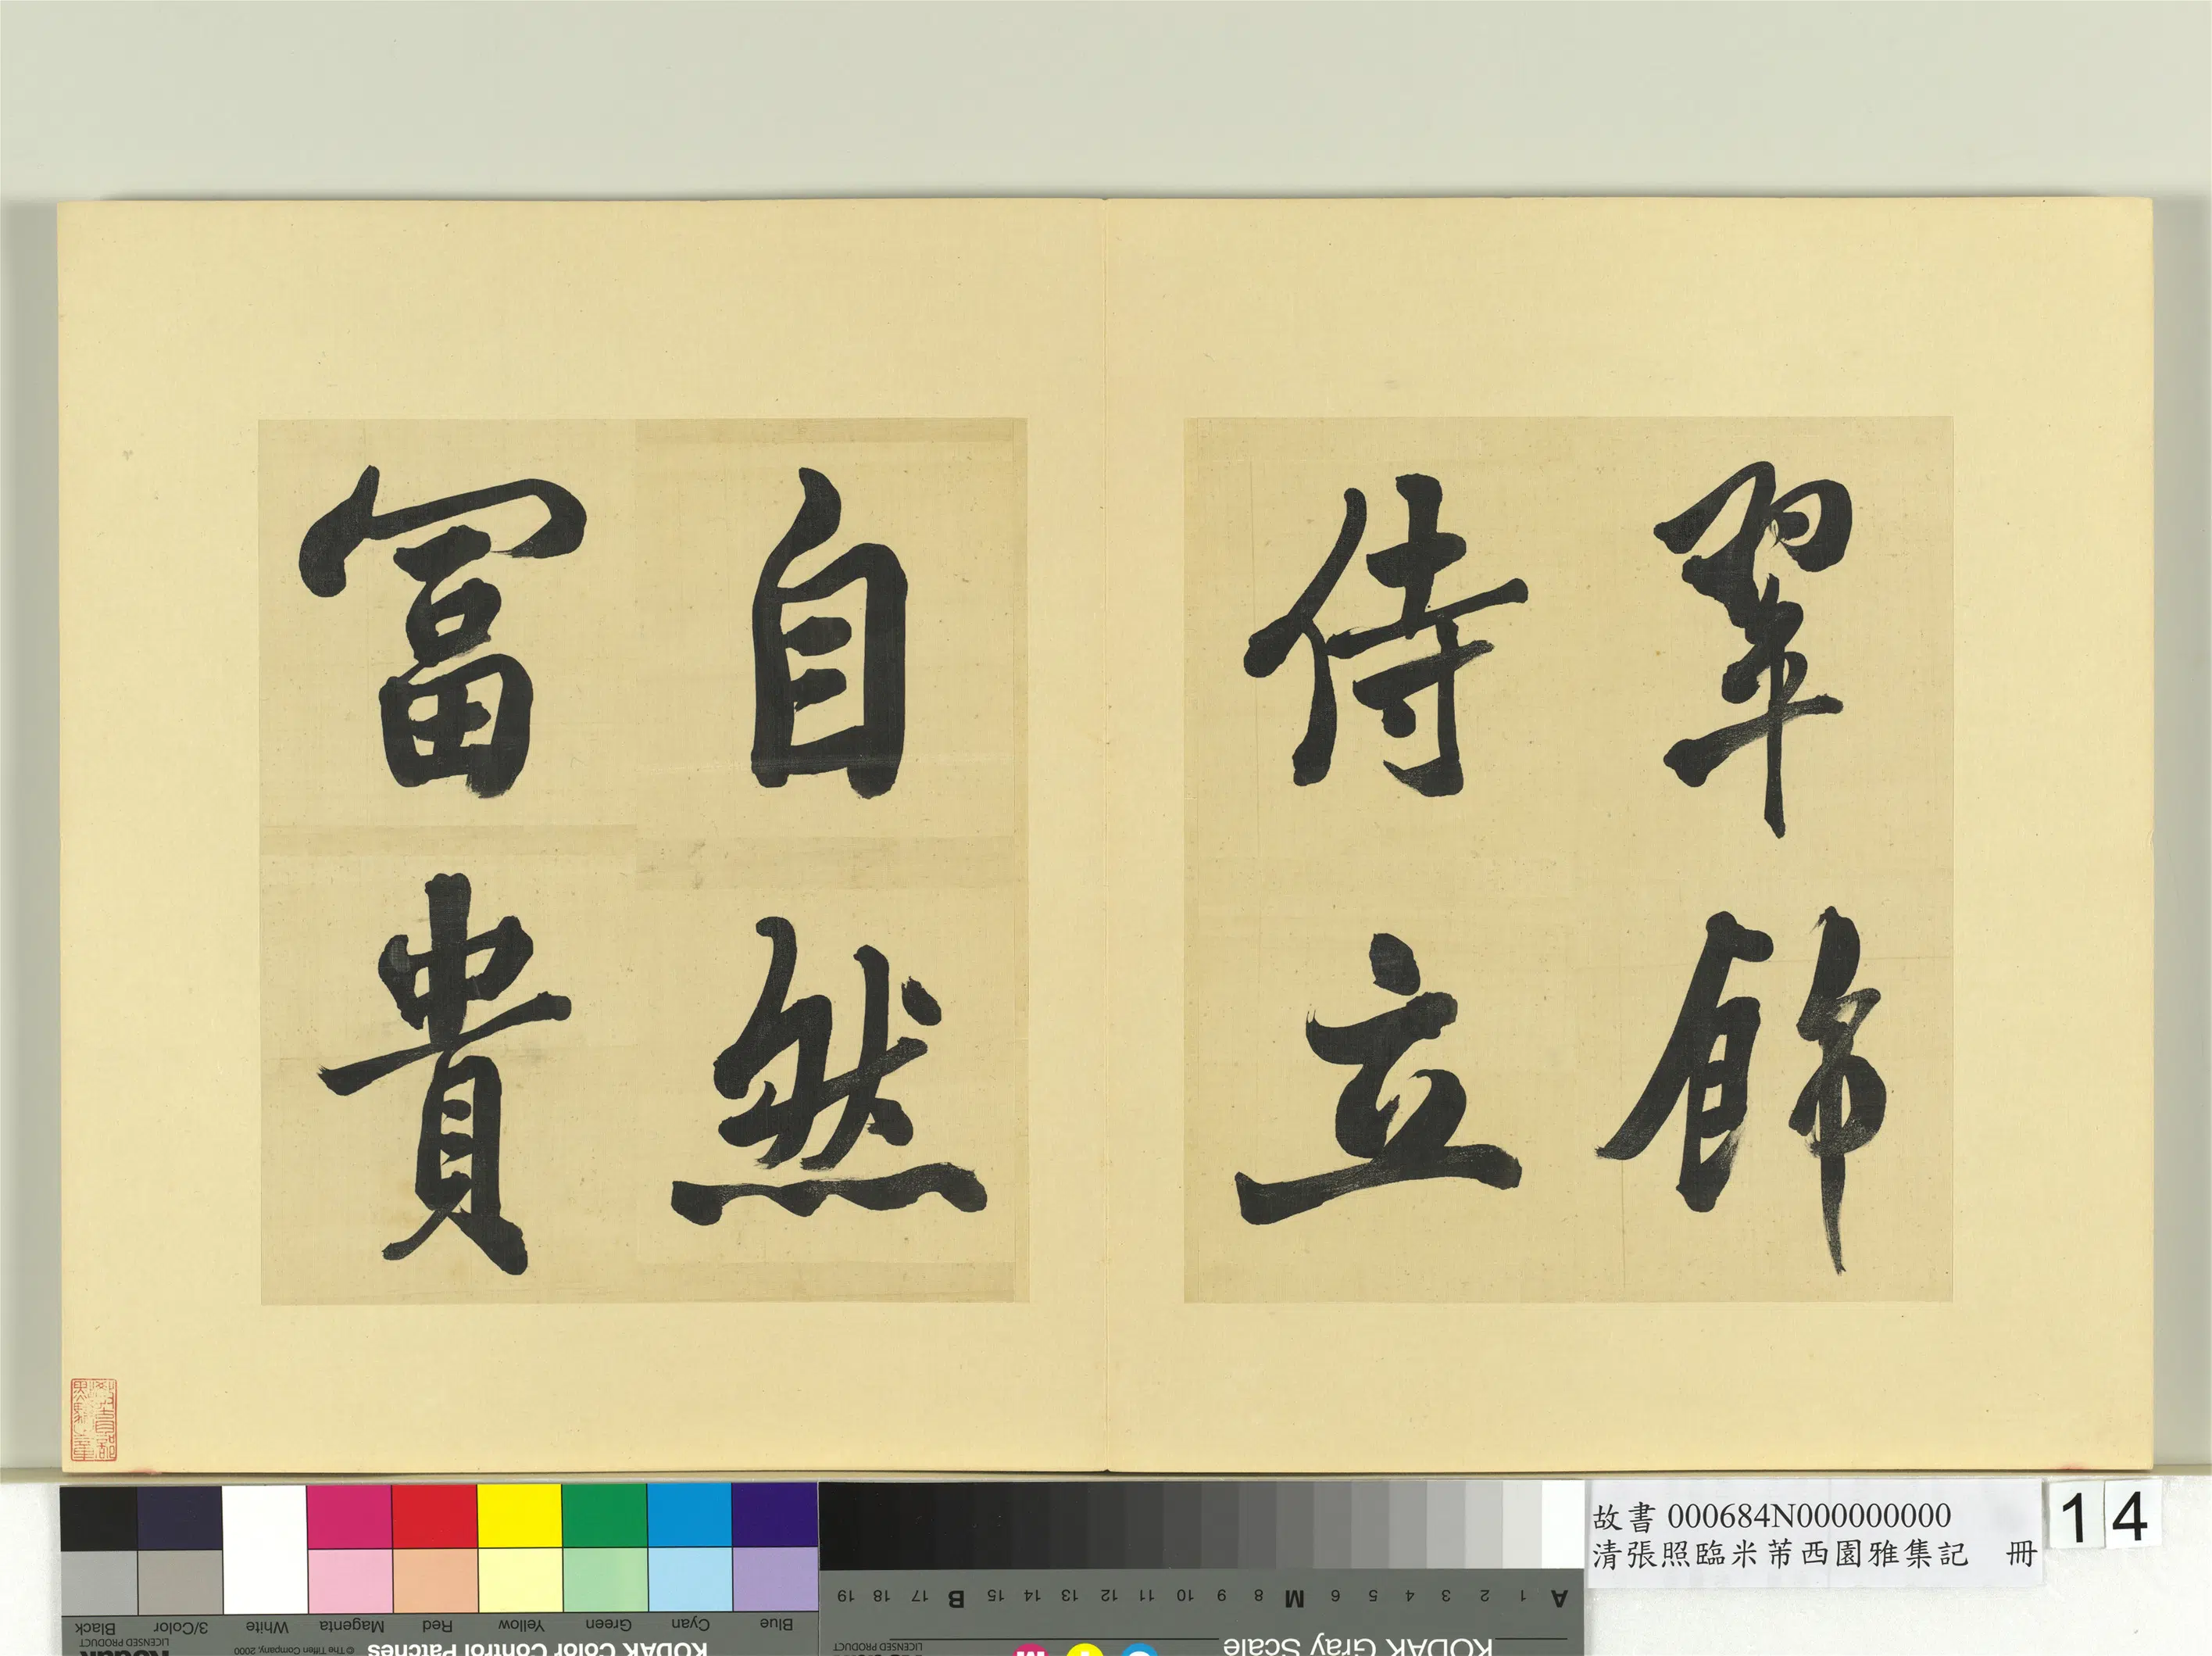 翠飾
侍立
自然
富貴
故書 000684N000000000
清張照臨米芾西園雅集記 冊
14
Black 3/Color White Magenta Red Yellow Green Cyan Blue
LICENSED PRODUCT
© The Tiffen Company, 2000
KODAK Color Control Patches
A 1 2 3 4 5 6 M 8 9 10 11 12 13 14 15 B 17 18 19
KODAK Gray Scale
LICENSED PRODUCT